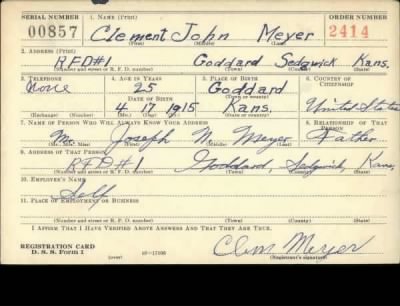 SERIAL NUMBER 1. NAME (Print) ORDER NUMBER
00857 Clement John Meyer 2414
(First) (Middle) (Last)
2. ADDRESS (Print)
RFD#1 Goddard Sedgwick Kans.
(Number and street or R. F. D. number) (Town) (County) (State)
3. TELEPHONE 4. AGE IN YEARS 5. PLACE OF BIRTH 6. COUNTRY OF CITIZENSHIP
None 25 Goddard
DATE OF BIRTH (Town or county)
4 17 1915 Kans. United States
(Exchange) (Number) (Mo.) (Day) (Yr.) (State or country)
7. NAME OF PERSON WHO WILL ALWAYS KNOW YOUR ADDRESS 8. RELATIONSHIP OF THAT PERSON
Mr. Joseph N. Meyer Father
(Mr., Mrs., Miss) (First) (Middle) (Last)
9. ADDRESS OF THAT PERSON
RFD#1 Goddard, Sedgwick, Kans,
(Number and street or R. F. D. number) (Town) (County) (State)
10. EMPLOYER'S NAME
Self
11. PLACE OF EMPLOYMENT OR BUSINESS
(Number and street or R. F. D. number) (Town) (County) (State)
I AFFIRM THAT I HAVE VERIFIED ABOVE ANSWERS AND THAT THEY ARE TRUE.
REGISTRATION CARD
D. S. S. Form 1 (over) 16-17105 Clem Meyer
(Registrant's signature)